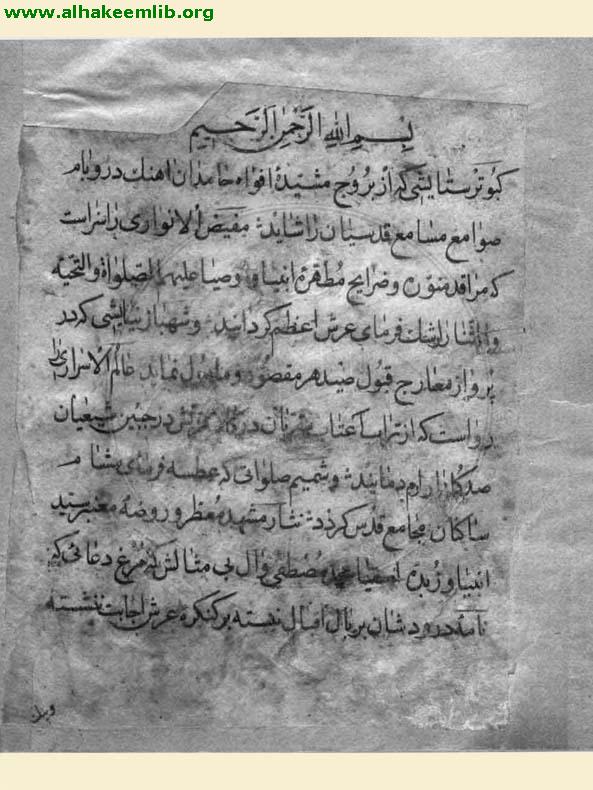 www.alhakeemlib.org
بسم الله الرحمن الرحيم
کبوتر ستایشی که از بروج مشیدهٔ افواه حامدان اهنک در و بام
صوامع مسامع قدسیان را شاید مفیض الانواری را سزاست
که مراقد منوره و ضرایح مطهره انبیا و وصیا علیهم الصلواة والتحیه
والثنا را رشك فرمای عرش اعظم کردانید و شهباز نیایشی که در
پرواز معارج قبول صید هر مقصور و مامول نماید عالم الاسراری را
رواست که از تراب اعتاب در جبین شیعیان
صد کلزار ارم دمانید و شمیم صلواتی که عطسه فرمای مشام
ساکنان مجامع قدس کردد نثار مشهد معطر و روضه معنبر سید
انبیا و زبدهٔ اصفیا محمد مصطفی و ال بی مثالش که مرغ دعائی که
نامه درود شان بر بال اقبال نبسته بر کنکره عرش اجابت ننشسته